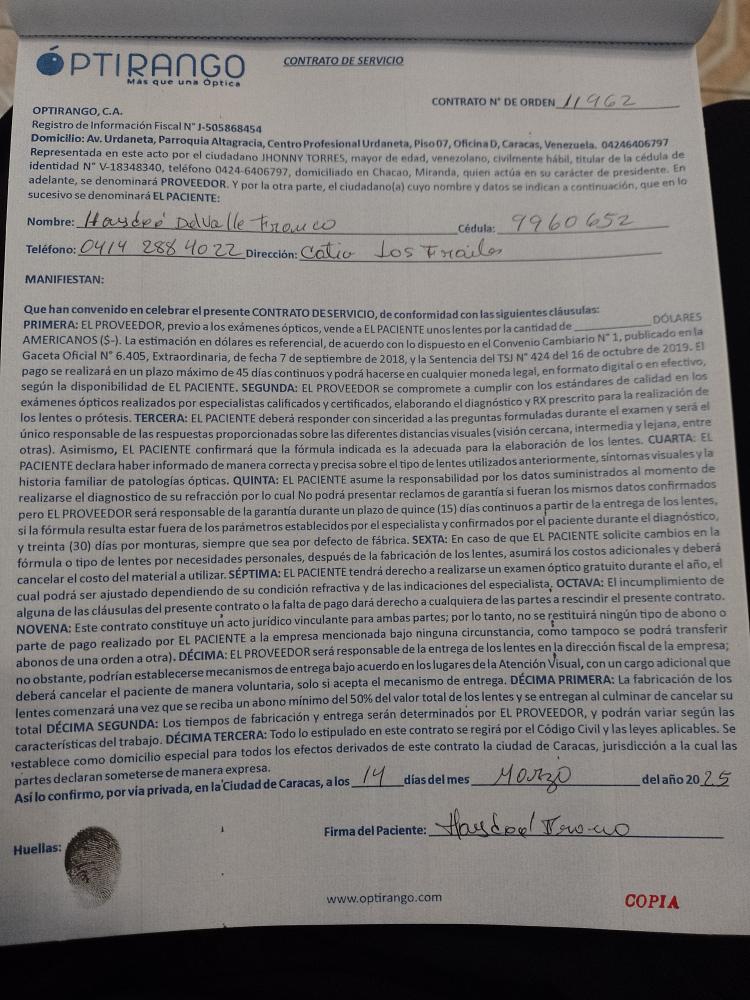 ÓPTIRANGO
Más que una Óptica
CONTRATO DE SERVICIO
CONTRATO N° DE ORDEN 11962
OPTIRANGO, C.A.
Registro de Información Fiscal N° J-505868454
Domicilio: Av. Urdaneta, Parroquia Altagracia, Centro Profesional Urdaneta, Piso 07, Oficina D, Caracas, Venezuela. 04246406797
Representada en este acto por el ciudadano JHONNY TORRES, mayor de edad, venezolano, civilmente hábil, titular de la cédula de
identidad N° V-18348340, teléfono 0424-6406797, domiciliado en Chacao, Miranda, quien actúa en su carácter de presidente. En
adelante, se denominará PROVEEDOR. Y por la otra parte, el ciudadano(a) cuyo nombre y datos se indican a continuación, que en lo
sucesivo se denominará EL PACIENTE:
Nombre: Haydeé Del Valle Franco Cédula: 9960652
Teléfono: 0414 288 4022 Dirección: Catia Los Frailes
MANIFIESTAN:
Que han convenido en celebrar el presente CONTRATO DE SERVICIO, de conformidad con las siguientes cláusulas:
PRIMERA: EL PROVEEDOR, previo a los exámenes ópticos, vende a EL PACIENTE unos lentes por la cantidad de DÓLARES
AMERICANOS ($-). La estimación en dólares es referencial, de acuerdo con lo dispuesto en el Convenio Cambiario N° 1, publicado en la
Gaceta Oficial N° 6.405, Extraordinaria, de fecha 7 de septiembre de 2018, y la Sentencia del TSJ N° 424 del 16 de octubre de 2019. El
pago se realizará en un plazo máximo de 45 días continuos y podrá hacerse en cualquier moneda legal, en formato digital o en efectivo,
según la disponibilidad de EL PACIENTE. SEGUNDA: EL PROVEEDOR se compromete a cumplir con los estándares de calidad en los
exámenes ópticos realizados por especialistas calificados y certificados, elaborando el diagnóstico y RX prescrito para la realización de
los lentes o prótesis. TERCERA: EL PACIENTE deberá responder con sinceridad a las preguntas formuladas durante el examen y será el
único responsable de las respuestas proporcionadas sobre las diferentes distancias visuales (visión cercana, intermedia y lejana, entre
otras). Asimismo, EL PACIENTE confirmará que la fórmula indicada es la adecuada para la elaboración de los lentes. CUARTA: EL
PACIENTE declara haber informado de manera correcta y precisa sobre el tipo de lentes utilizados anteriormente, síntomas visuales y la
historia familiar de patologías ópticas. QUINTA: EL PACIENTE asume la responsabilidad por los datos suministrados al momento de
realizarse el diagnostico de su refracción por lo cual No podrá presentar reclamos de garantía si fueran los mismos datos confirmados
pero EL PROVEEDOR será responsable de la garantía durante un plazo de quince (15) días continuos a partir de la entrega de los lentes,
si la fórmula resulta estar fuera de los parámetros establecidos por el especialista y confirmados por el paciente durante el diagnóstico,
y treinta (30) días por monturas, siempre que sea por defecto de fábrica. SEXTA: En caso de que EL PACIENTE solicite cambios en la
fórmula o tipo de lentes por necesidades personales, después de la fabricación de los lentes, asumirá los costos adicionales y deberá
cancelar el costo del material a utilizar. SÉPTIMA: EL PACIENTE tendrá derecho a realizarse un examen óptico gratuito durante el año, el
cual podrá ser ajustado dependiendo de su condición refractiva y de las indicaciones del especialista. OCTAVA: El incumplimiento de
alguna de las cláusulas del presente contrato o la falta de pago dará derecho a cualquiera de las partes a rescindir el presente contrato.
NOVENA: Este contrato constituye un acto jurídico vinculante para ambas partes; por lo tanto, no se restituirá ningún tipo de abono o
parte de pago realizado por EL PACIENTE a la empresa mencionada bajo ninguna circunstancia, como tampoco se podrá transferir
abonos de una orden a otra). DÉCIMA: EL PROVEEDOR será responsable de la entrega de los lentes en la dirección fiscal de la empresa;
no obstante, podrían establecerse mecanismos de entrega bajo acuerdo en los lugares de la Atención Visual, con un cargo adicional que
deberá cancelar el paciente de manera voluntaria, solo si acepta el mecanismo de entrega. DÉCIMA PRIMERA: La fabricación de los
lentes comenzará una vez que se reciba un abono mínimo del 50% del valor total de los lentes y se entregan al culminar de cancelar su
total DÉCIMA SEGUNDA: Los tiempos de fabricación y entrega serán determinados por EL PROVEEDOR, y podrán variar según las
características del trabajo. DÉCIMA TERCERA: Todo lo estipulado en este contrato se regirá por el Código Civil y las leyes aplicables. Se
establece como domicilio especial para todos los efectos derivados de este contrato la ciudad de Caracas, jurisdicción a la cual las
partes declaran someterse de manera expresa.
Así lo confirmo, por vía privada, en la Ciudad de Caracas, a los 14 días del mes Marzo del año 2025
Firma del Paciente: Haydeé Franco
Huellas:
www.optirango.com
COPIA